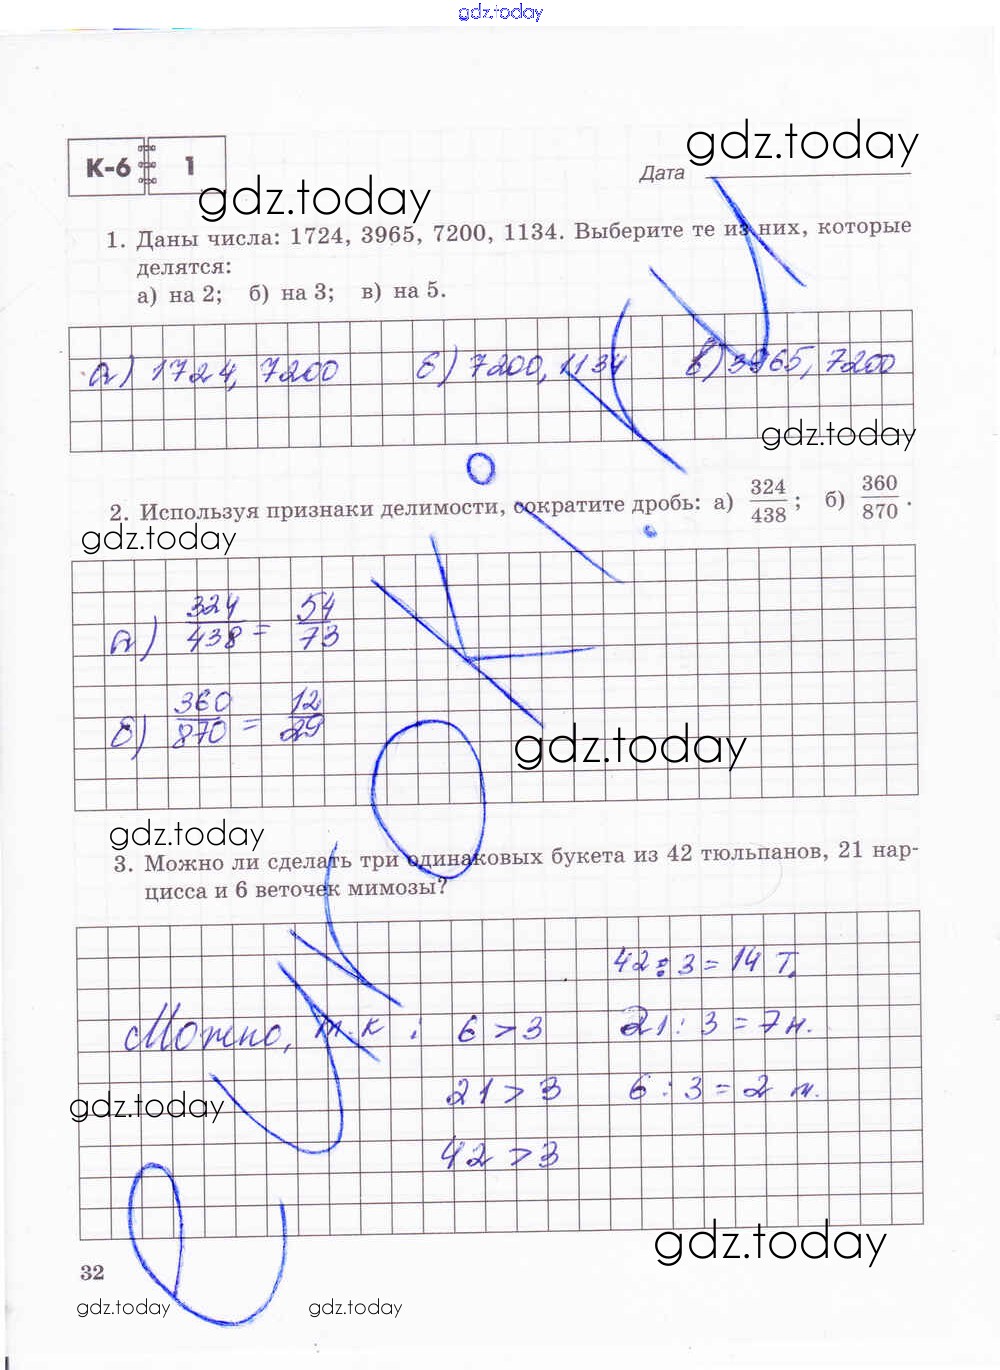 gdz.today
К-6 1
gdz.today
Дата
gdz.today
1. Даны числа: 1724, 3965, 7200, 1134. Выберите те из них, которые
делятся:
а) на 2; б) на 3; в) на 5.
а) 1724, 7200 б) 7200, 1134 в) 3965, 7200
gdz.today
2. Используя признаки делимости, сократите дробь: а) 324/438; б) 360/870.
gdz.today
а) 324/438 = 54/73
б) 360/870 = 12/29
gdz.today
gdz.today
3. Можно ли сделать три одинаковых букета из 42 тюльпанов, 21 нар-
цисса и 6 веточек мимозы?
42 : 3 = 14 т.
Можно, т.к : 6 > 3 21 : 3 = 7 н.
21 > 3 6 : 3 = 2 м.
gdz.today
42 > 3
gdz.today
32
gdz.today gdz.today